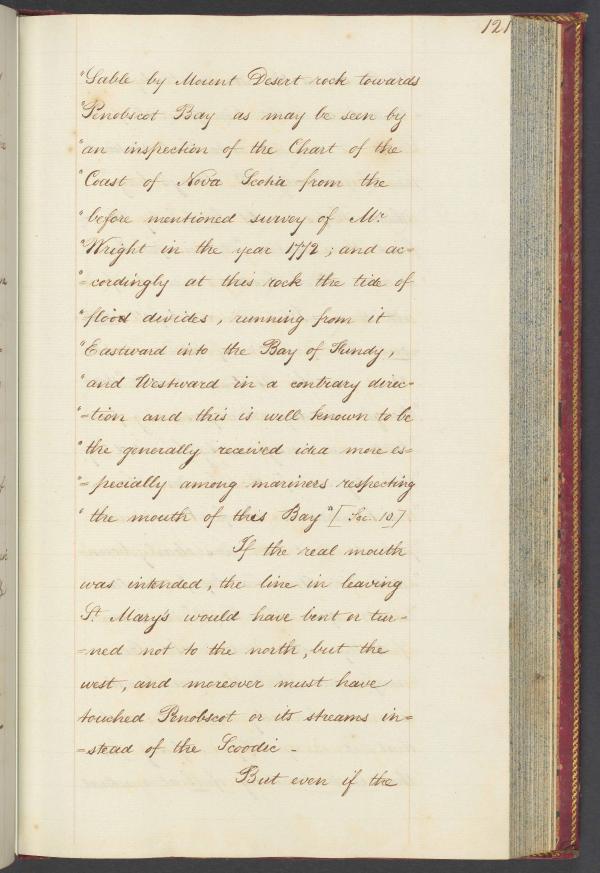 121
"Sable by Mount Desert rock towards
"Penobscot Bay as may be seen by
"an inspection of the Chart of the
"Coast of Nova Scotia from the
"before mentioned survey of Mr
"Wright in the year 1772; and ac=
"=cordingly at this rock the tide of
"flood divides, running from it
"Eastward into the Bay of Fundy,
"and Westward in a contrary direc-
"=tion and this is well known to be
"the generally received idea more es=
"=pecially among mariners respecting
"the mouth of this Bay" [Sec. 10.]
If the real mouth
was intended, the line in leaving
St. Mary's would have bent or tur=
=ned not to the north, but the
west, and moreover must have
touched Penobscot or its streams in=
=stead of the Scoodic -
But even if the